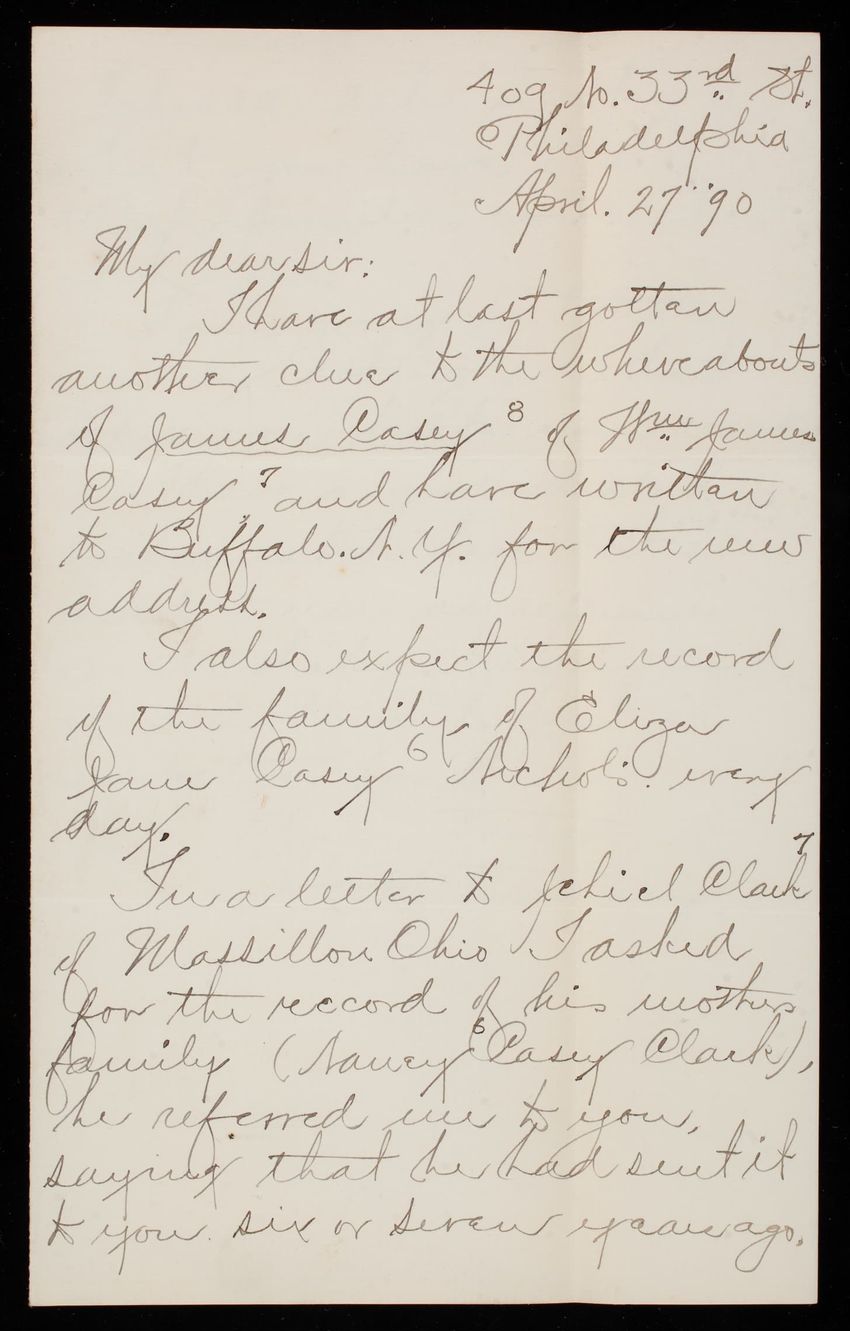 409 No. 33rd St.
Philadelphia
April. 27 '90
My dear sir:
I have at last gotten
another clue to the whereabouts
of James Casey 8 of Wm James
Casey, 7 and have written
to Buffalo. N. Y. for the new
address.
I also expect the record
of the family of Eliza
Jane Casey 6 Nichols. every
day.
In a letter to Jehiel Clark 7
of Massillon Ohio I asked
for the record of his mothers
family (Nancy 6 Casey Clark),
he referred me to you,
saying that he had sent it
to you six or seven years ago.